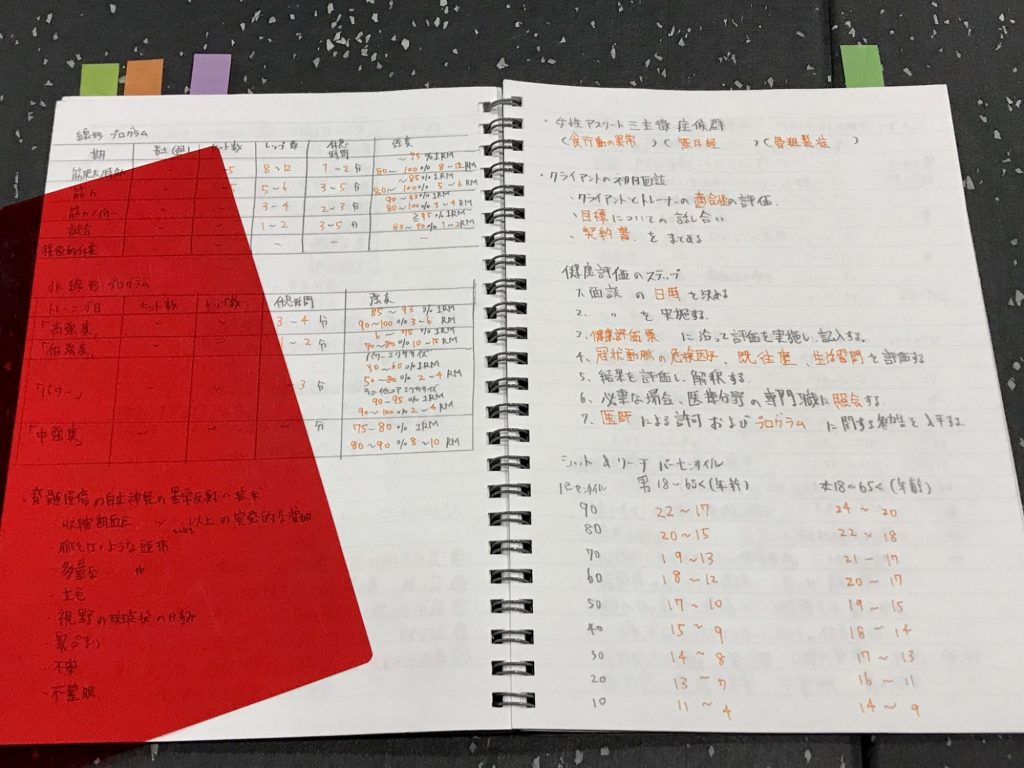 線形 プログラム
期 長さ(週) セット数 レップ数 休息時間 強度
5 8~12 1~2分 ~75%1RM
80~100% 8~12RM
筋力 5~6 3~5分 ~85%1RM
80~100% 5~6RM
筋力/パワー 3~4 2~3分 90~93%1RM
80~100% 3~4RM
試合 1~2 3~5分 ≧95%1RM
80~90% 1~2RM
非線形プログラム
トレーニング日 セット数 レップ数 休息時間 強度
「高強度」 3~4分 85~93%1RM
90~100% 3~6RM
「低強度」 1~2分
90~80% 10~15RM
「パワー」 3分 パワーエクササイズ
30~60%1RM
50~80% 2~4RM
その他のエクササイズ
90~95%1RM
90~100% 2~4RM
「中強度」 分 75~80%1RM
80~90% 8~10RM
・脊髄損傷の自律神経の異常反射の症状
・収縮期血圧 以上の突発的な増加
・脈を打つような頭痛
・多量な
・立毛
・視野の斑点状の
・鼻づまり
・不安
・不整脈
・女性アスリート三主徴症候群
(食行動の異常)(無月経)(骨粗鬆症)
・クライアントの初回面談
・クライアントとトレーナーの適合性の評価.
・目標についての話し合い
・契約書をまとめる
健康評価のステップ
1.面談の日時を決める
2. 〃 を実施する.
3.健康評価票に沿って評価を実施し、記入する.
4.冠状動脈の危険因子、既往歴、生活習慣を評価する
5.結果を評価し、解釈する.
6.必要な場合、医療分野の専門職に照会する.
7.医師による許可およびプログラムに関する勧告を入手する.
シット&リーチ パーセンタイル
パーセンタイル 男18~65<(年齢) 女18~65<(年齢)
90 22~17 24~20
80 20~15 22~18
70 19~13 21~17
60 18~12 20~17
50 17~10 19~15
40 15~9 18~14
30 14~8 17~13
20 13~7 16~11
10 11~4 14~9